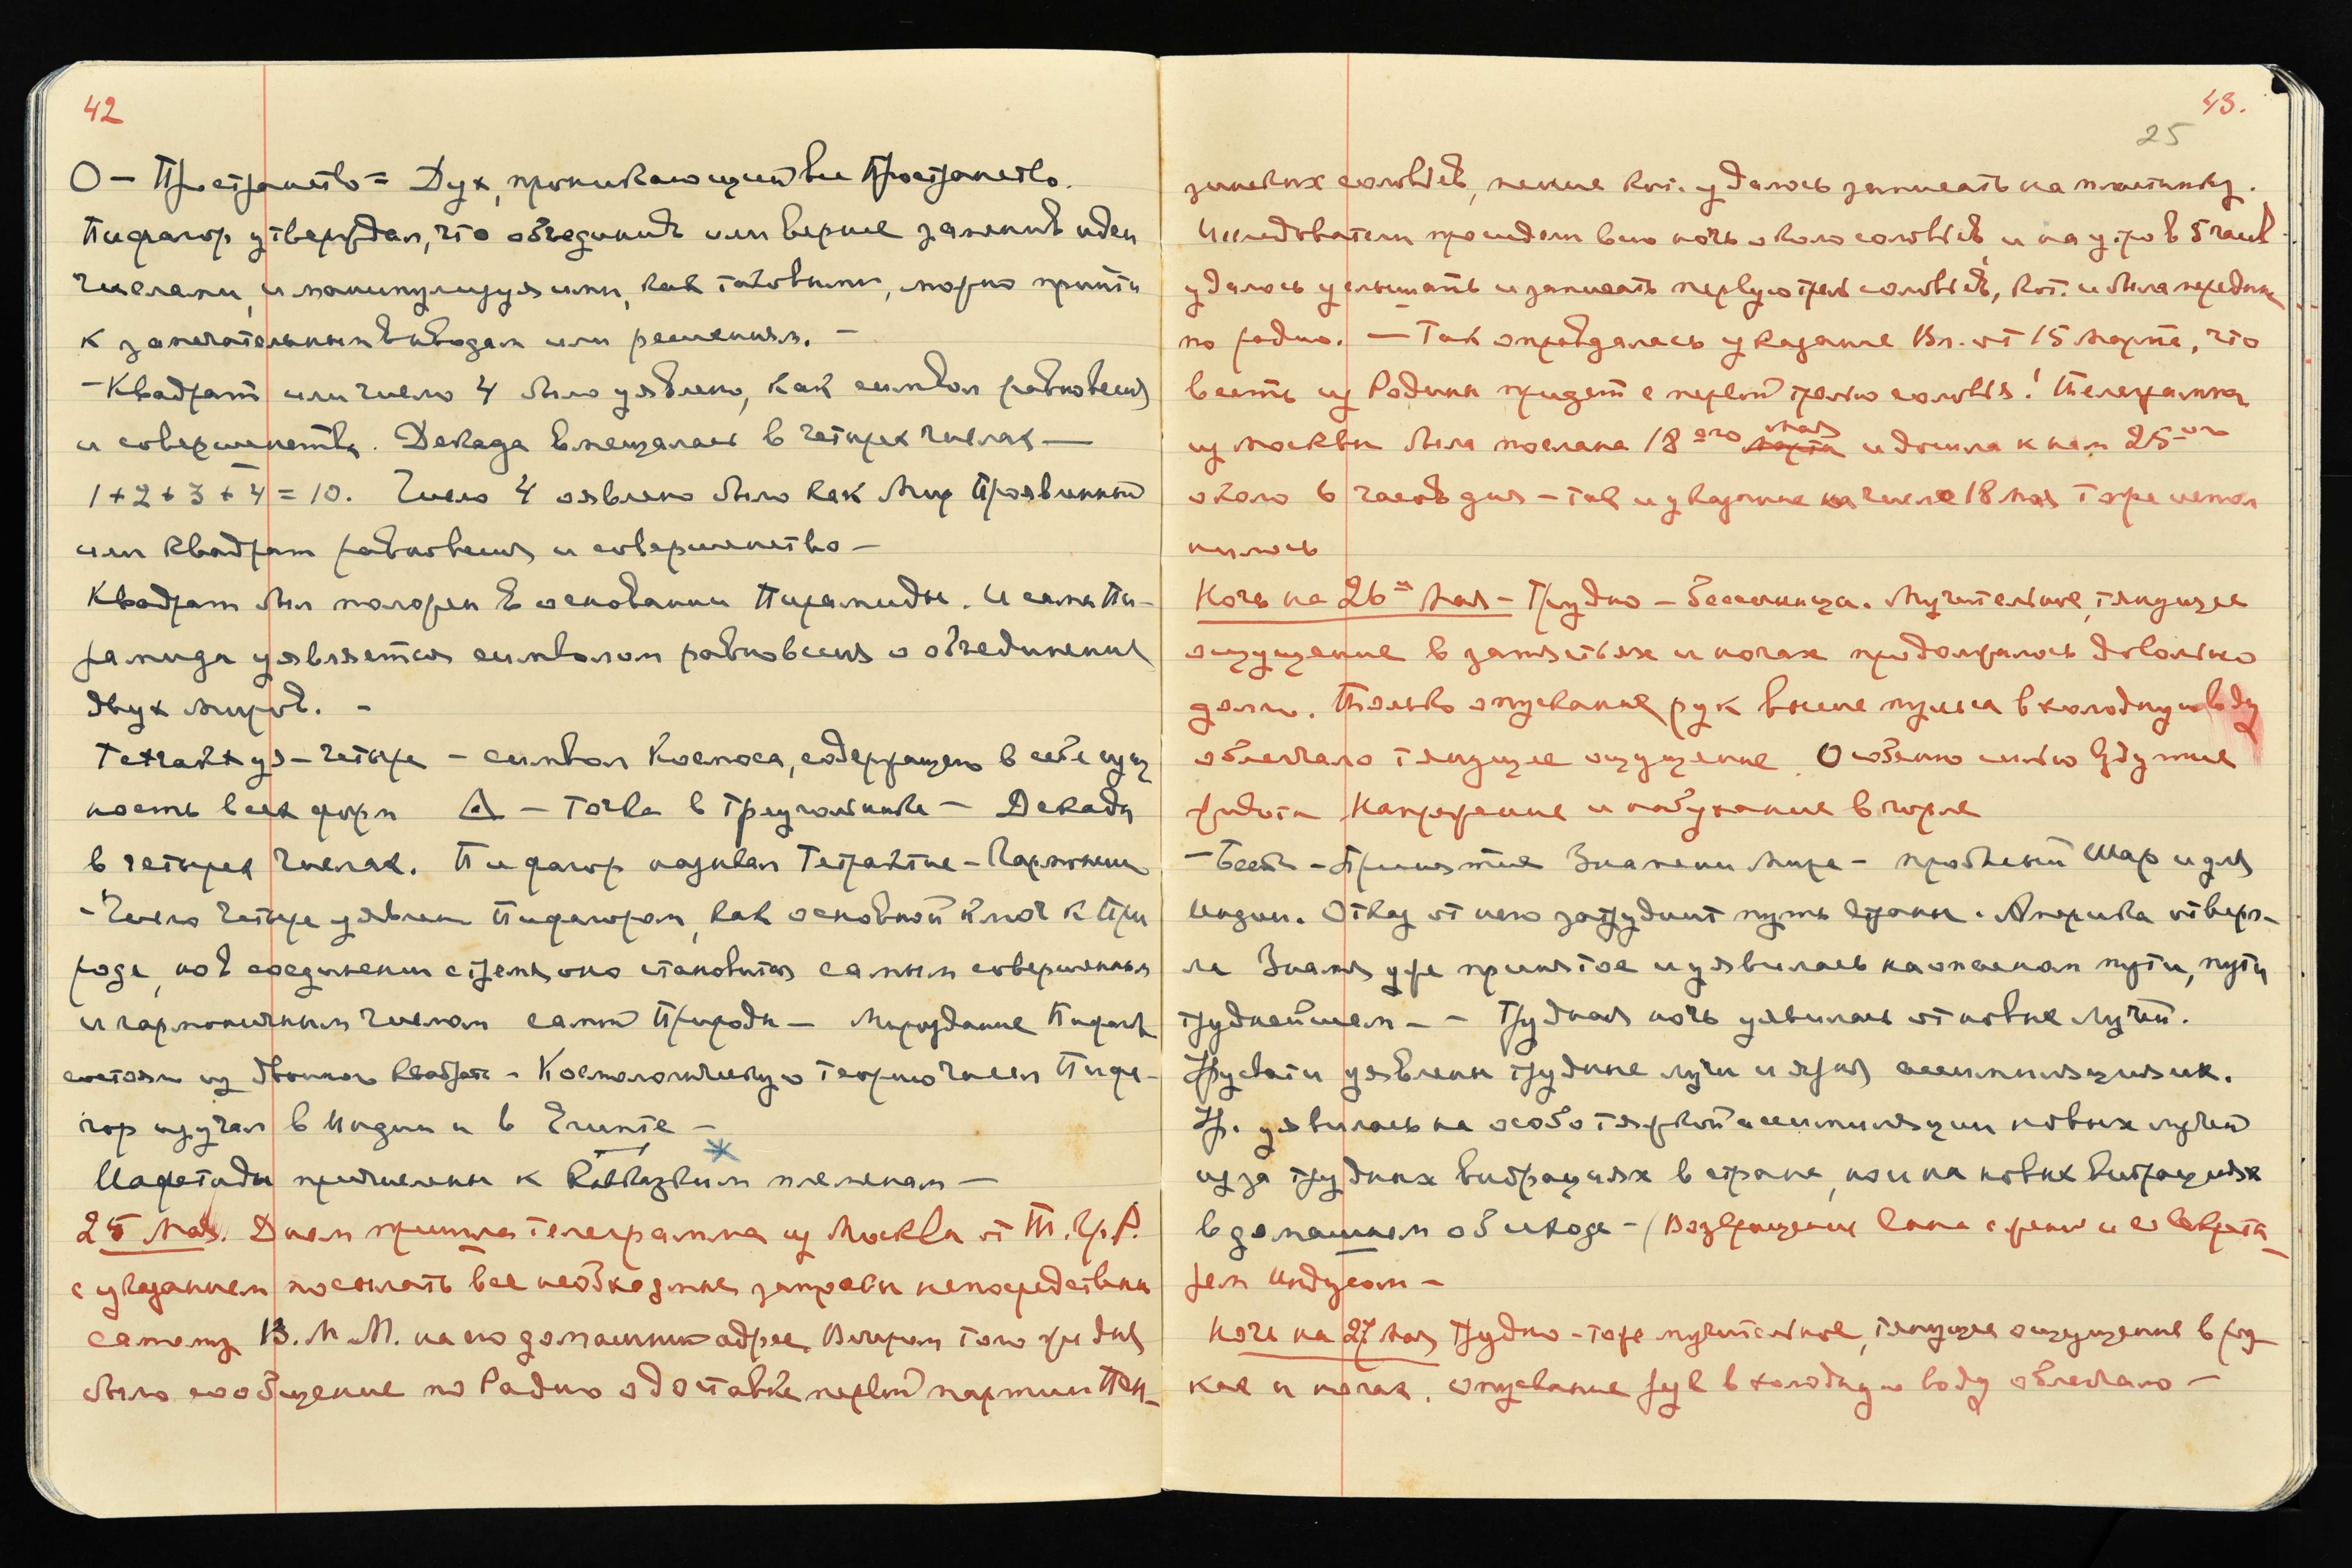 42
О — Пространство = Дух, проникающий все Пространство.
Пифагор утверждал, что объединив или вернее заменив идеи
числами, и манипулируя ими, как таковыми, можно прийти
к замечательным выводам или решениям. —
— Квадрат или число 4 было уявлено, как символ равновесия
и совершенства. Декада вмещалась в четырех числах —
1+2+3+4=10. Число 4 оявлено было как Мир Проявленный
или квадрат равновесия и совершенство —
Квадрат был положен в основании Пирамиды. И сама Пи-
рамида уявляется символом равновесия и объединения
двух миров. —
четыре — символ Космоса, содержащего в себе сущ
ность всех форм — Точка в треугольнике — Декады
в четырех числах. Пифагор называл Тетрактис — Гармонии
— Число четыре уявлен Пифагором, как основной ключ к При
роде, но в соединении с тремя оно становится самым совершенным
и гармоничным числом самой Природы — Мироздание
состояли из двойного квадрата — Космологическую теорию чисел Пифа-
гор изучал в Индии и в Египте —
Иафетиды причислены к Кавказким племенам —
25 Мая. Днем пришла телеграмма из Москвы от
с указанием посылать все необходимые запросы непосредственно
самому В. М. М. на его домашний адрес. Вечером того же дня
было сообщение по Радио о доставке первой партии
43.
25
соловьев, пение кот. удалось записать на пластинку.
Исследователи просидели всю ночь около соловьев, и на утро в 5 часов
удалось услышать и записать первую трель соловьев, кот. и была передана
по радио. — Так оправдалось указание Вл. от 15 Марта, что
весть из Родины придет с первой трелью соловья! Телеграмма
из Москвы была послана 18ого Мая и дошла к нам 25-ого
около 6 часов дня — так и указание на число 18 Мая тоже испол
нилось
Ночь на 26е Мая — Трудно — бессонница. Мучительное, тянущее
ощущение в запястьях и ногах продолжалось довольно
долго. Только опускание рук выше пульса в холодную воду
облегчало тянущее ощущение. Особенно сильно вздутие
живота Напряжение и набухание в горле
— Бесед. — Принятие Знамени Мира — пробный Шар и для
Индии. Отказ от него затруднит путь страны. Америка отверг-
ла Знамя уже принятое и уявилась на опасном пути, пути
труднейшем — — Трудная ночь уявилась от новых Лучей.
Урусвати уявлены трудные лучи и ассимиляция их.
Ур. уявилась на особо тяжкой ассимиляции новых лучей
из за трудных вибрациях в стране, но и на новых вибрациях
в домашнем обиходе — (Возвращения сына с женою и с секрета
рем Индусом —
Ночь на 27 Мая Трудно — тоже мучительное, тянущее ощущение в ру
ках и ногах. опускание рук в холодную воду облегчало —